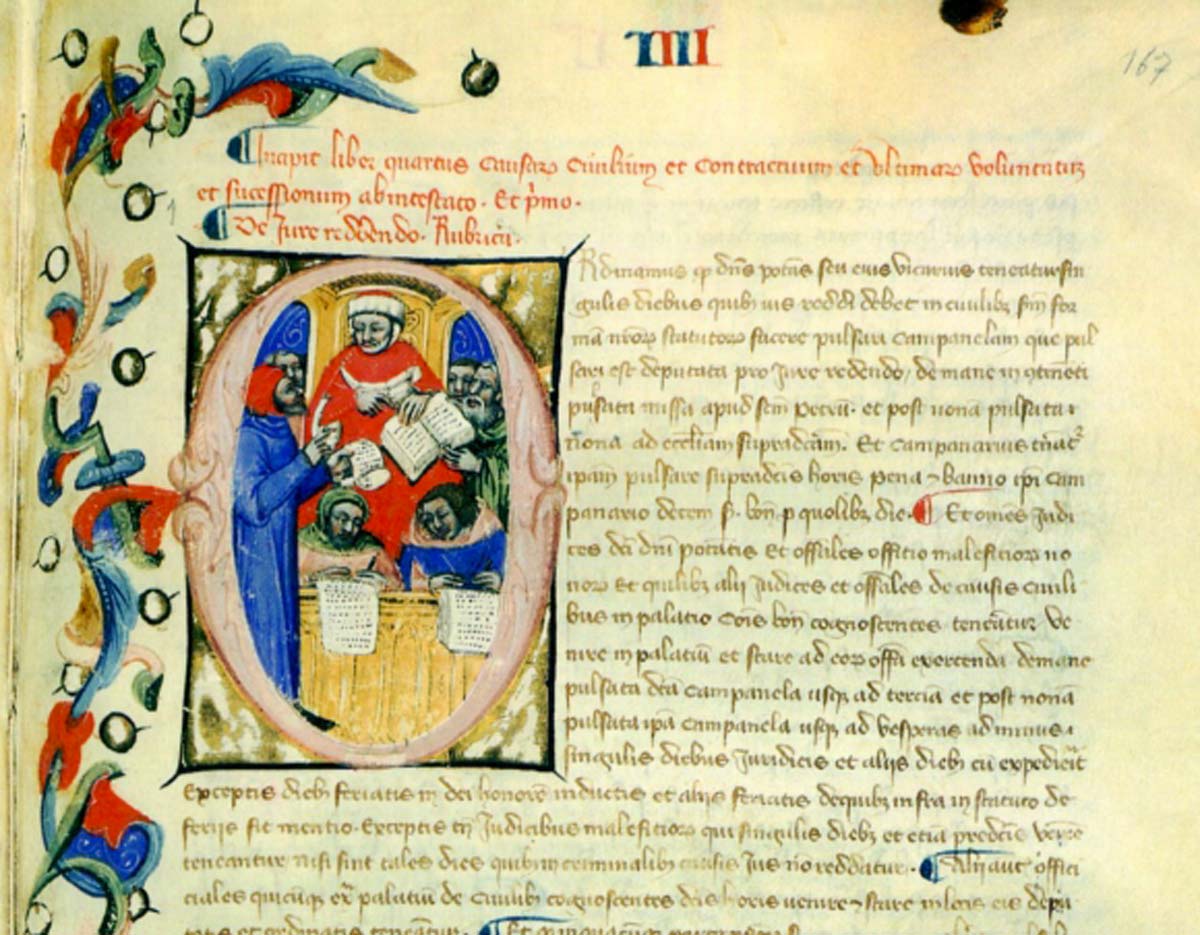 IIII
167
Incipit liber quartus Causarȝ Ciuiliuȝ et Contractuum et Vltimarȝ Voluntatuȝ
et sucessionum abintestato. Et pͥmo.
De Iure reddendo. Rubrica.
Ordinamus qp dn̄s potās seu eius vicarius teneatur sin
gulis diebus quibꝫ ius reddi debet in ciuilibꝫ scdm for
mā nr̄orȝ statutorȝ facere pulsari campanelam que pul
sari est deputata pro Iure redendo, de mane
pulsata missa apud scm̄ Petrū. et post nonā pulsata.
nona ad eccl̄iam supradcām. Et campanarius
ipam pulsare supradcīs horis pena banno ipi Cam
panario decem bon̄ p quolibꝫ die. Et omēs Iudi
ces dcī dn̄i potātis Et offitiales offitio malefitiorȝ no
norȝ Et quilibꝫ alij Iudices et offāles de causis ciuili
bus in palatio Cōis bon̄ cognoscentes teneātur ve
nire in palatiū et stare ad eorȝ offā exercenda de mane
pulsata dcā campanela usqꝫ ad terciā et post nonā
pulsata ipā campanela usqꝫ ad vesperas ad minus.
singulis diebus Iuridicis et aliis diebꝫ cū expedierit
Exceptis diebꝫ feriatis in dei honorē inductis et aliis feriatis dequibꝫ infra in statuto de
feriis fit mentio. Exceptis tn̄ Iudicibus malefitiorȝ qui singulis diebꝫ et etiā predcīs venire
teneantur nisi sint tales dies quibꝫ in criminalibꝫ causis Ius nō reddatur. Alij aut̄ offici
ciales quicūqꝫ ext̄ palatiū de ciuilibꝫ cognoscentes dcīs horis venire stare in locis eis depu
tatis et ordinatis teneantur. Et